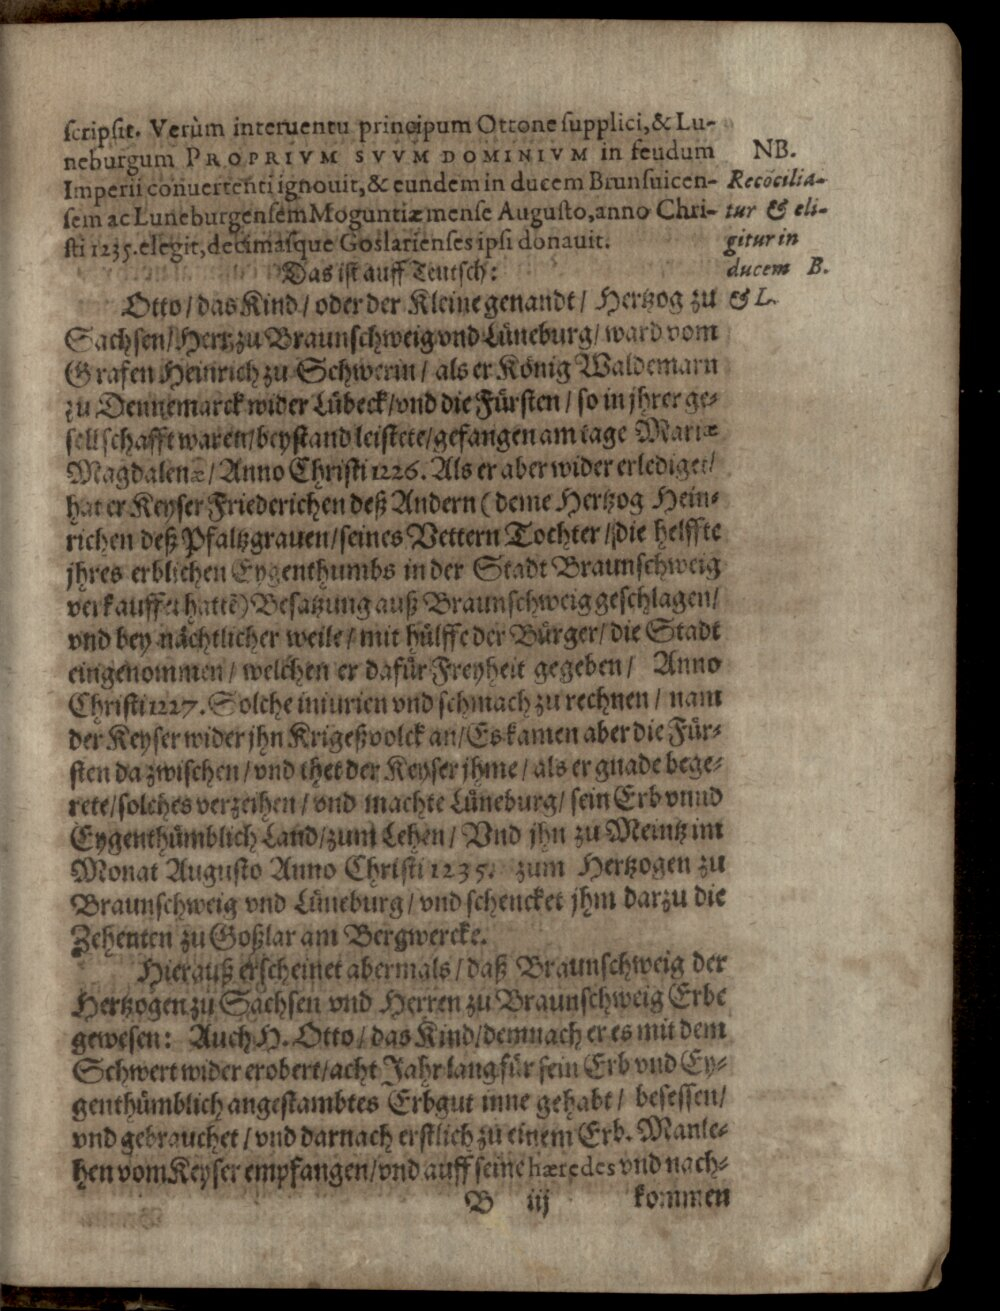 scripsit. Verùm interuentu principum Ottone supplici, & Lu-
neburgum PROPRIVM SVVM DOMINIVM in feudum
Imperii conuertenti ignovit, & eundem in ducem Brunsuicen-
sem ac Luneburgensem Moguntiæ mense Augusto, anno Chri-
sti 1235. elegit, decimasque Goslarienses ipsi donavit.
NB.
Recõcilia-
tur & eli-
gitur in
ducem B.
& L.
Das ist auff Teutsch:
Otto / das Kind / oder der Kleine genandt / Hertzog zu
Sachsen / Herr zu Braunschweig vnd Lüneburg / ward vom
Grafen Heinrich zu Schwerin / als er König Waldemarn
zu Dennemarck wider Lübeck / vnd die Fürsten / so in jhrer ge-
sellschafft waren / beystand leistete / gefangen am tage Mariæ
Magdalenæ / Anno Christi 1226. Als er aber wider erlediget /
hat er Keyser Friederichen deß Andern (deme Hertzog Hein-
richen deß Pfaltzgrauen / seines Vettern Tochter / die helffte
jhres erblichen Eygenthumbs in der Stadt Braunschweig
verkauffet hattē) Besatzung auß Braunschweig geschlagen /
vnd bey nächtlicher weile / mit hülffe der Bürger / die Stadt
eingenommen / welchen er dafür Freyheit gegeben / Anno
Christi 1227. Solche iniurien vnd schmach zu rechnen / nam
der Keyser wider jhn Krigeßvolck an / Es kamen aber die Für-
sten dazwischen / vnd thet der Keyser jhme / als er gnade bege-
rete / solches verzeihen / vnd machte Lüneburg / sein Erb vnnd
Eygenthümblich Land / zum Lehen / Vnd jhn zu Meintz im
Monat Augusto Anno Christi 1235. zum Hertzogen zu
Braunschweig vnd Lüneburg / vnd schencket jhm darzu die
Zehenten zu Goßlar am Bergwercke.
Hierauß erscheinet abermals / daß Braunschweig der
Hertzogen zu Sachsen vnd Herren zu Braunschweig Erbe
gewesen: Auch H. Otto / das Kind / demnach er es mit dem
Schwert wider erobert / acht Jahr lang für sein Erb vnd Ey-
genthümblich angestambtes Erbgut inne gehabt / besessen /
vnd gebrauchet / vnd darnach erstlich zu einem Erb. Manle-
hen vom Keyser empfangen / vnd auff seine hæredes vnd nach-
B iij kommen